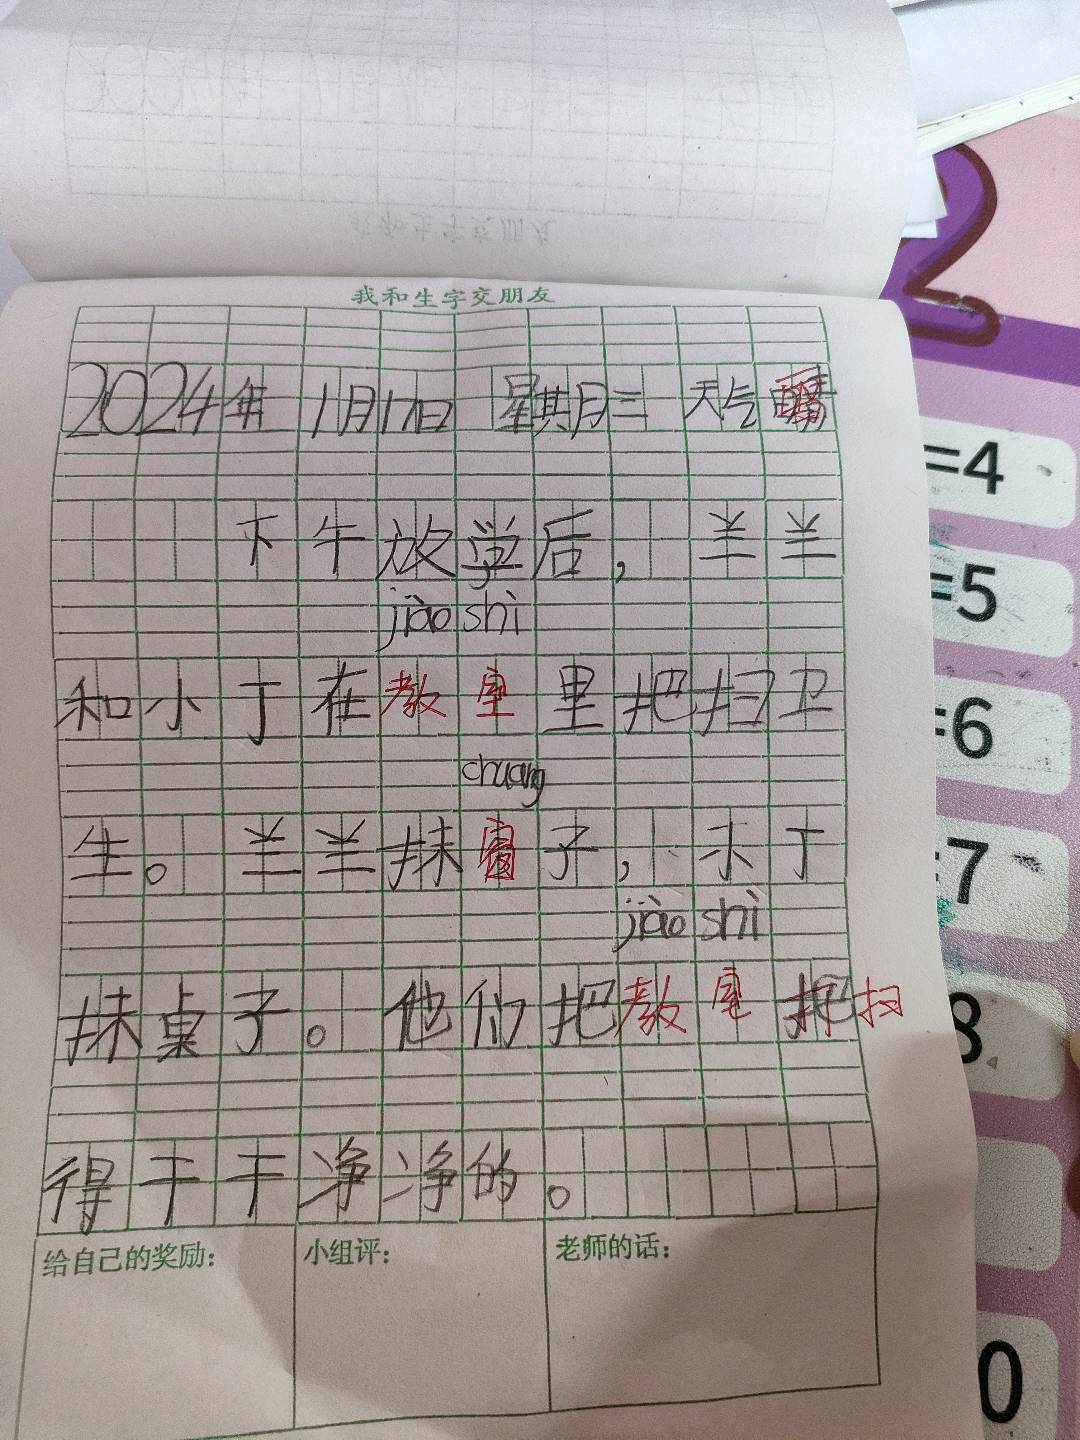 我和生字交朋友
2024年 1月17日 星其月三 天气晴
下午放学后，羊羊
jiào shì
和小丁在教室里把扫卫
chuang
生。羊羊抹窗子，小丁
jiào shì
抹桌子。他们把教室把扫
得干干净净的。
给自己的奖励：
小组评：
老师的话：
2
=4
=5
=6
=7
8
0